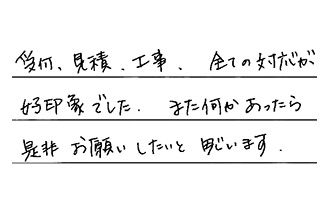 受付、見積、工事、全ての対応が
好印象でした. また何かあったら
是非お願いしたいと思います.